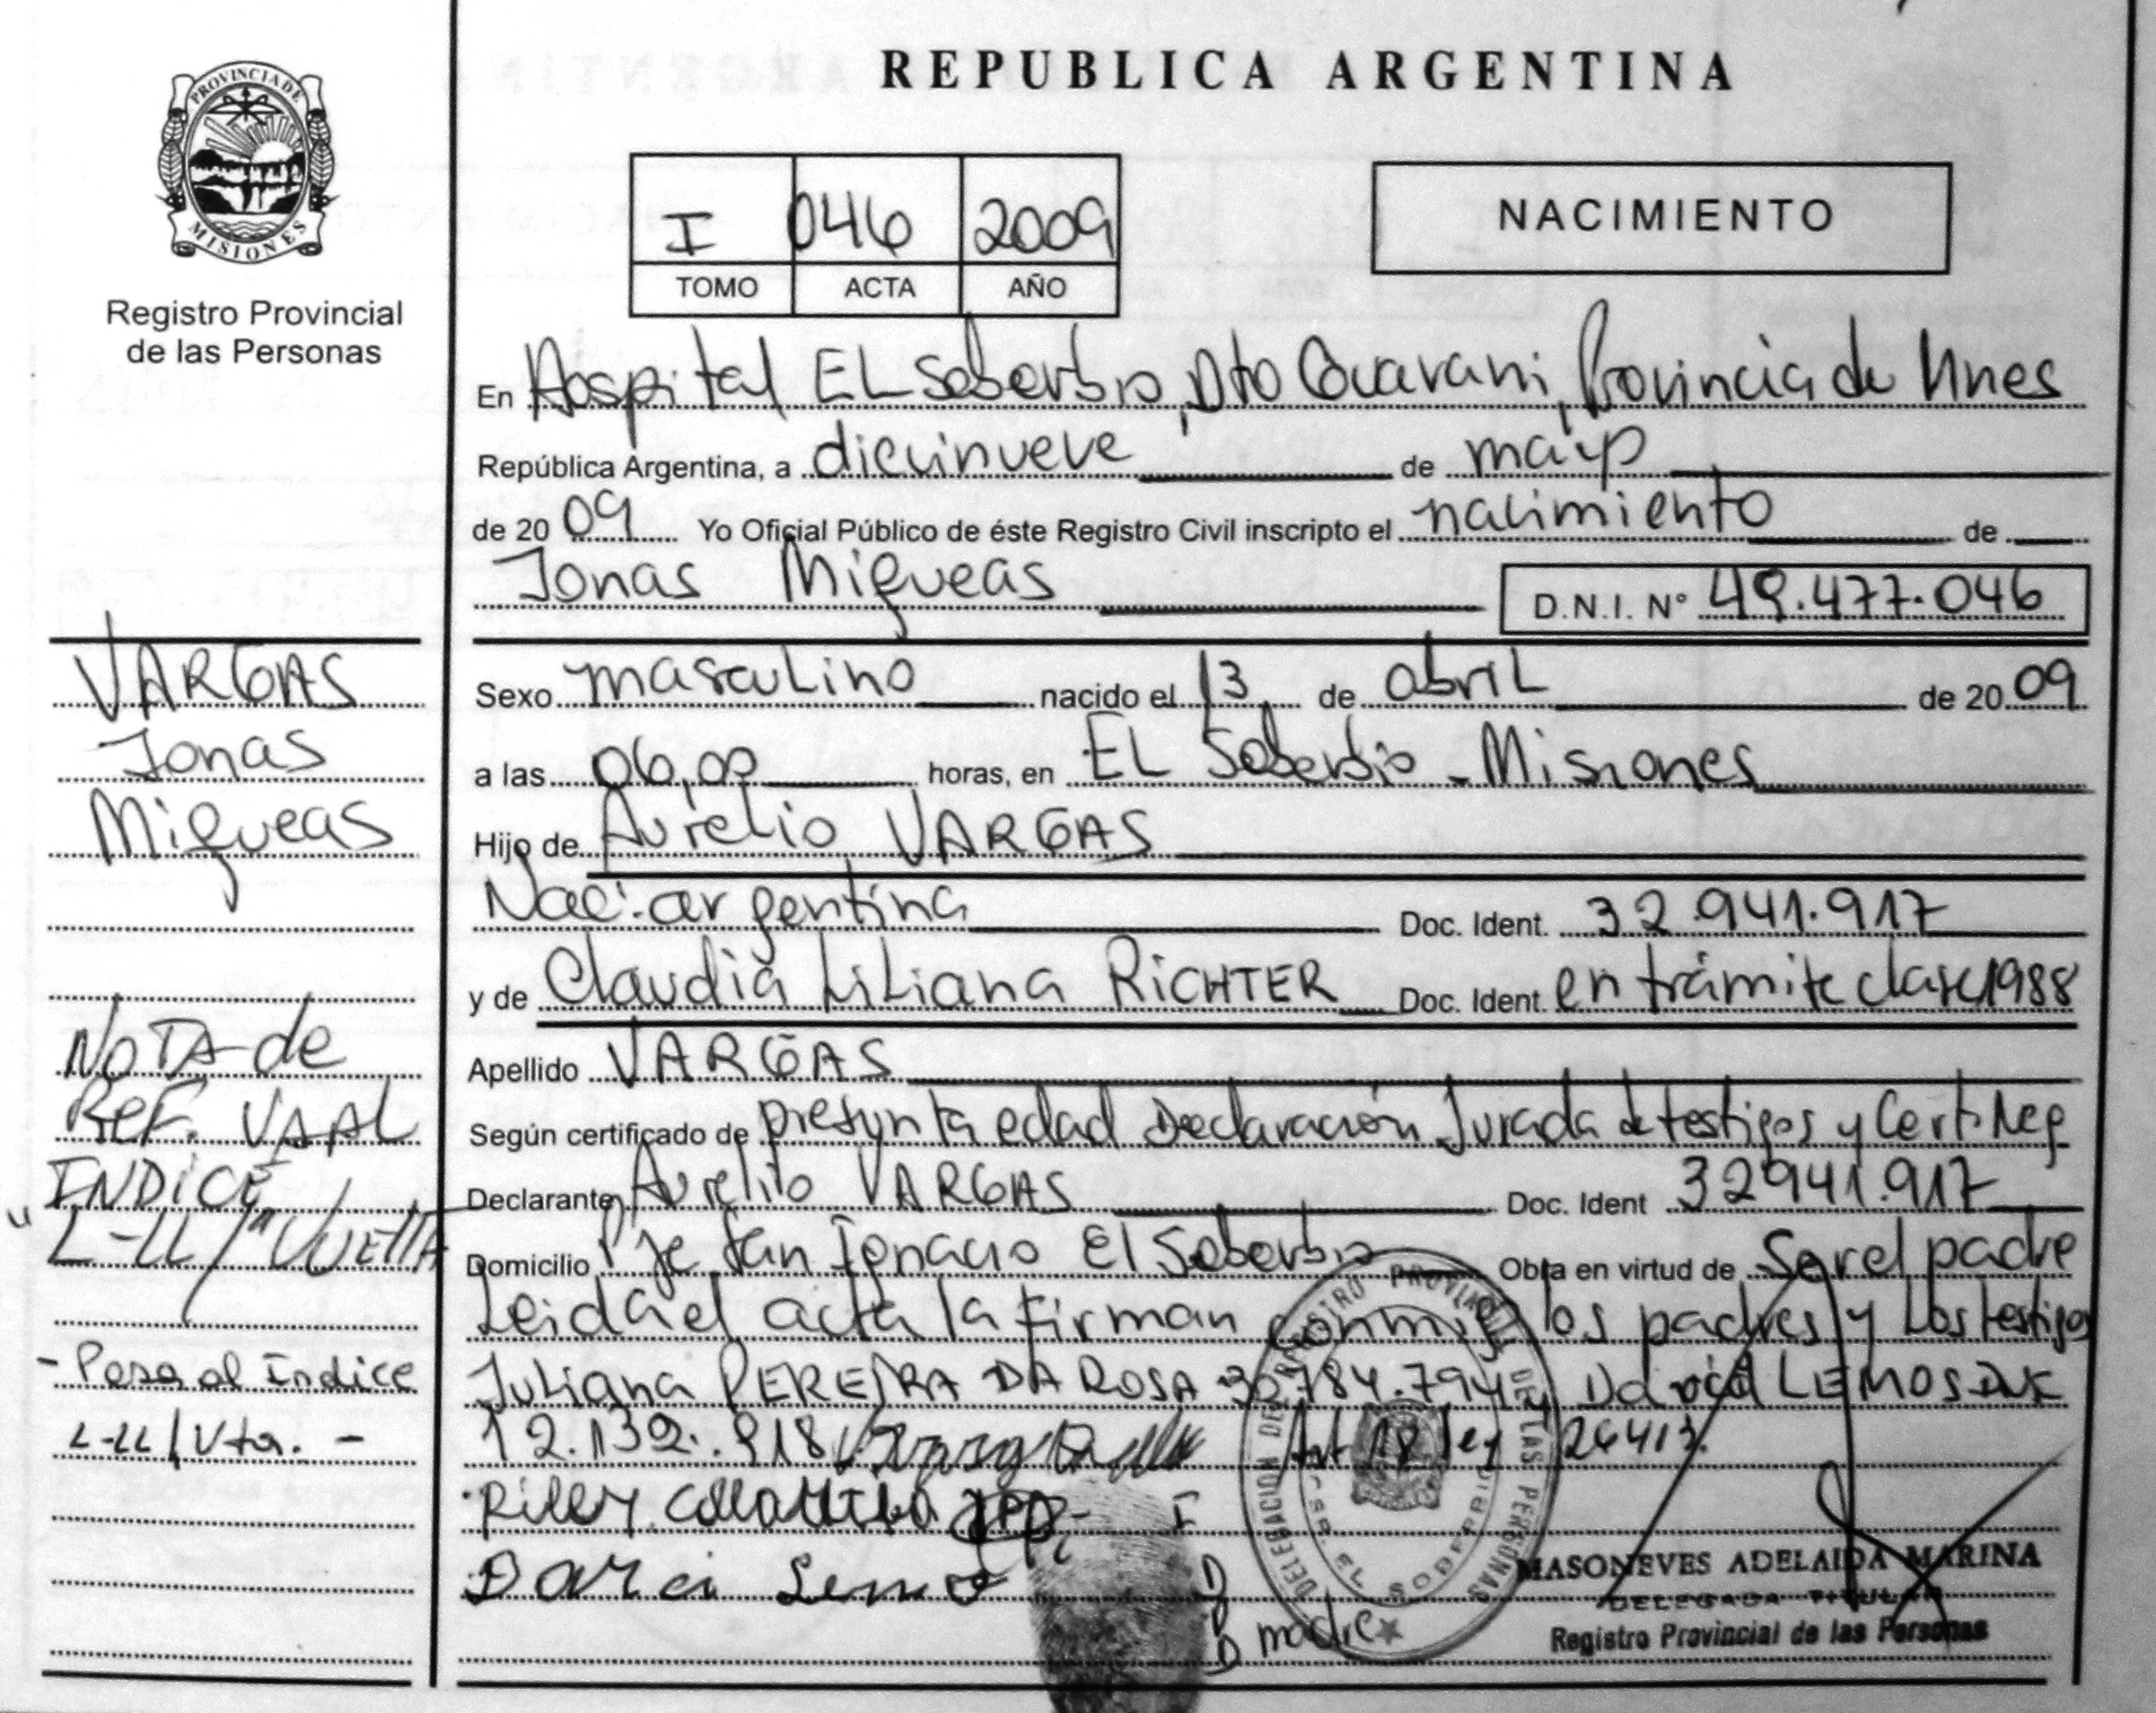 REPUBLICA ARGENTINA
PROVINCIA DE
MISIONES
Registro Provincial
de las Personas
I 046 2009
TOMO ACTA AÑO
NACIMIENTO
En Hospital EL Soberbio, Dto Guarani, Provincia de Mnes
República Argentina, a diecinueve de mayo
de 2009 Yo Oficial Público de éste Registro Civil inscripto el nacimiento de
Jonas Miqueas D.N.I. Nº 49.477.046
VARGAS
Jonas
Miqueas
Sexo masculino nacido el 13 de abril de 2009
a las 06,00 horas, en EL Soberbio - Misiones
Hijo de Aurelio VARGAS
Nac. argentina Doc. Ident. 32.941.917
y de Claudia Liliana RiCHTER Doc. Ident. en trámite clase 1988
Apellido VARGAS
Según certificado de presunta edad Declaración Jurada de testigos y Cert. Neg
Declarante Aurelio VARGAS Doc. Ident 32941.917
Domicilio Pje San Ignacio El Soberbio Obra en virtud de ser el padre
Leida el acta la firman conmigo los padres y Los testigos
Juliana PEREIRA DA ROSA 30.784.794 y LEMOS
12.132.918 Art 18 ley 26413.
NOTA de
Ref. VA AL
INDiCE
"L-LL/" VUELTA
- Pasa al Indice
L-LL/Vta. -
I
D
D madre
DELEGACION DEL REGISTRO PROVINCIAL DE LAS PERSONAS
EL SOBERBIO
MASONEVES ADELAIDA MARINA
DELEGADA TITULAR
Registro Provincial de las Personas